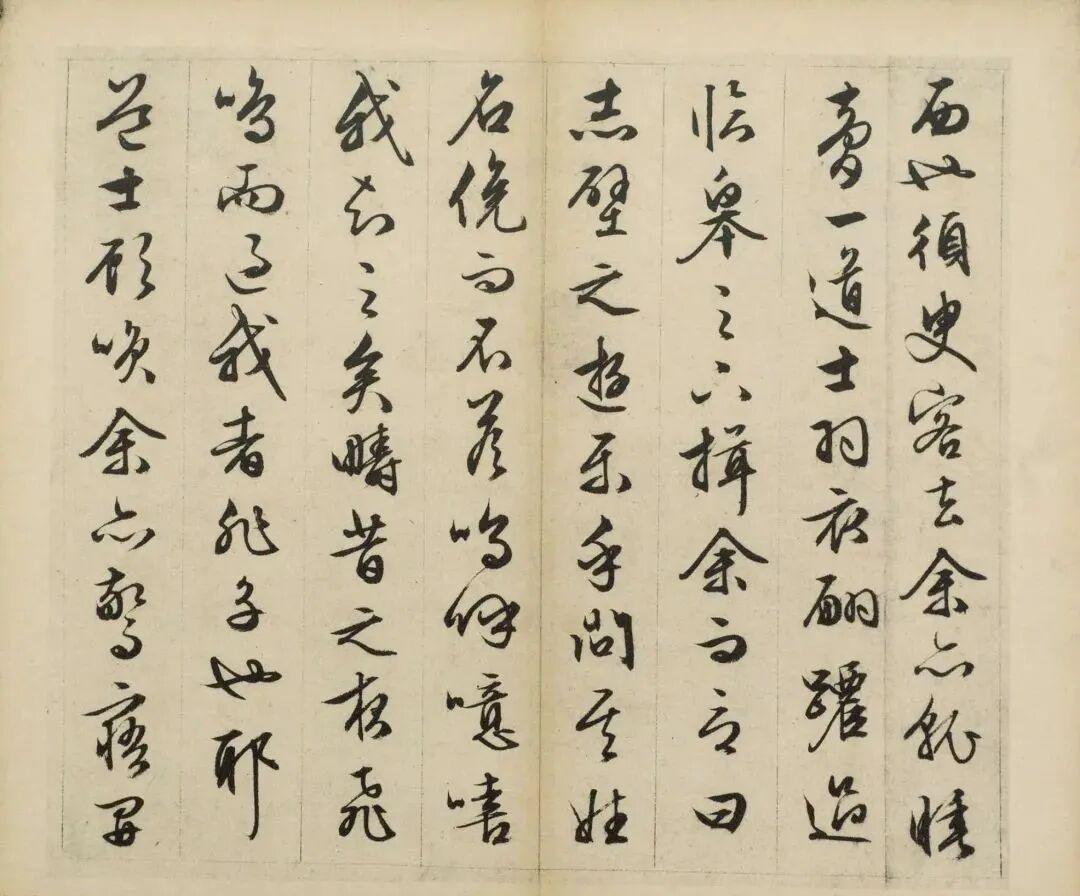 西也須臾客去余亦就睡
夢一道士羽衣翩躚過
臨皋之下揖余而言曰
赤壁之遊樂乎問其姓
名俛而不答嗚呼噫嘻
我知之矣疇昔之夜飛
鳴而過我者非子也耶
道士顧咲余亦驚寤開